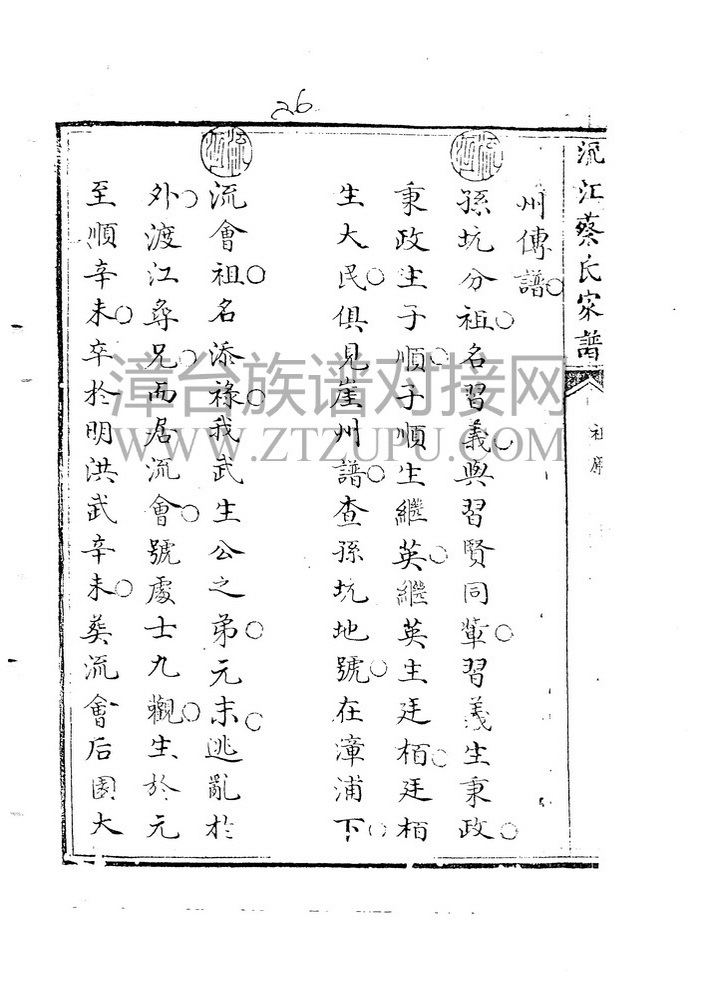 26
沉江蔡氏家譜
祖廟
州傳譜○
孫坑分祖○名習義○與習賢同輩○習義生秉政○
秉政生子順○子順生繼英○繼英生廷栢○廷栢
生大民○俱見崖州譜○查孫坑地號○在漳浦下○
流會祖○名添祿○我武生公之弟○元末○逃亂於
外○渡江尋兄○而居流會○號處士九觀○生於元
至順辛未○卒於明洪武辛未○葬流會后園大
漳台族谱对接网
WWW.ZTZUPU.COM